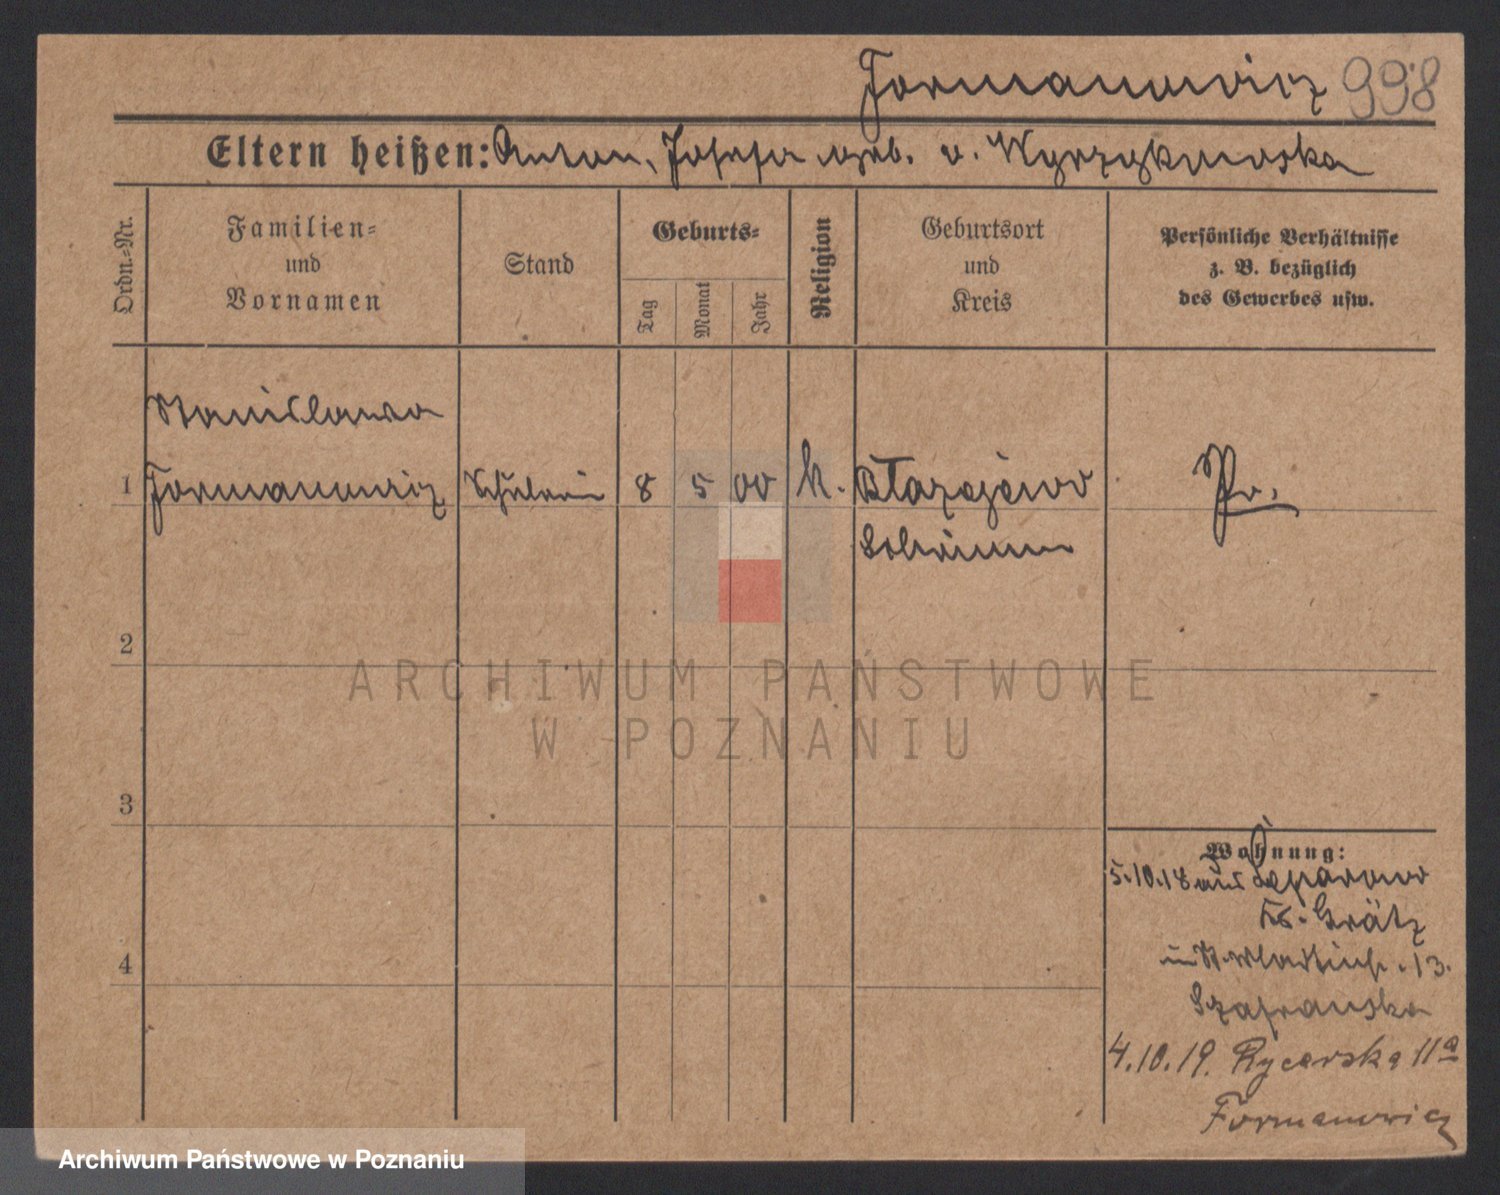 Formanowicz 998
Eltern heißen: Anton, Josefa geb. v.
Ordn.-Nr.
Familien-
und
Vornamen
Stand
Geburts-
Tag
Monat
Jahr
Religion
Geburtsort
und
Kreis
Persönliche Verhältnisse
z. B. bezüglich
des Gewerbes usw.
Stanislawa
1 Formanowicz Schülerin 8 5 00 k. Błażejewo Pr.
Schrimm
2
3
4
Wohnung:
5.10.18 aus
Kr. Grätz
13.
Szafranska
4.10.19. Rycerska 11a
Formanowicz
ARCHIWUM PAŃSTWOWE
W POZNANIU
Archiwum Państwowe w Poznaniu